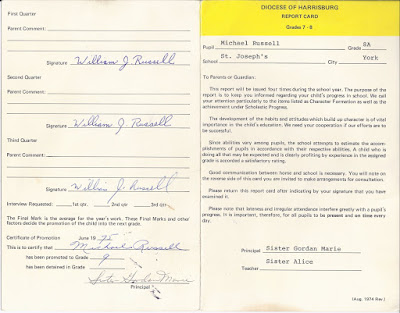 First Quarter
Parent Comment:
Signature William J Russell
Second Quarter
Parent Comment:
Signature William J Russell
Third Quarter
Parent Comment:
Signature William J Russell
Interview Requested: 1st qtr. 2nd qtr. 3rd qtr.
The Final Mark is the average for the year's work. These Final Marks and other
factors decide the promotion of the child into the next grade.
Certificate of Promotion June 19 75
This is to certify that Michael Russell
has been promoted to Grade 9
has been detained in Grade
Sister Gordan Marie
Principal
DIOCESE OF HARRISBURG
REPORT CARD
Grades 7 - 8
Pupil Michael Russell Grade 8A
School St. Joseph's City York
To Parents or Guardian:
This report will be issued four times during the year. The purpose of
the report is to keep you informed regarding your child's progress in school. We call
your attention particularly to the items listed as Character Formation as well as the
achievement under Scholastic Progress.
The development of the habits and attitudes which build up character is of vital
importance in the child's education. We need your cooperation if our efforts are to
be successful.
Since abilities vary among pupils, the school attempts to estimate the accom-
plishments of pupils in accordance with their respective abilities. A child who is
doing all that may be expected and is clearly profiting by experience in the assigned
grade is accorded a satisfactory rating.
Good communication between home and school is necessary. You will note on
the reverse side of this card you are invited to make arrangements for consultation.
Please return this report card after indicating by your signature that you have
examined it.
Please note that lateness and irregular attendance interfere greatly with a pupil's
progress. It is important, therefore, for all pupils to be present and on time every
day.
Principal Sister Gordan Marie
Sister Alice
Teacher
(Aug. 1974 Rev.)